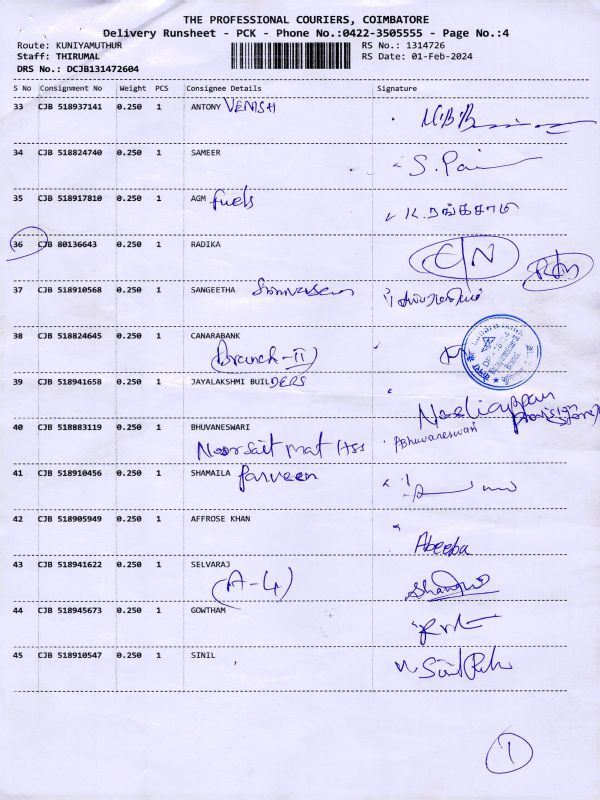 THE PROFESSIONAL COURIERS, COIMBATORE
Delivery Runsheet - PCK - Phone No.:0422-3505555 - Page No.:4
Route: KUNIYAMUTHUR RS No.: 1314726
Staff: THIRUMAL RS Date: 01-Feb-2024
DRS No.: DCJB131472604
S No Consignment No Weight PCS Consignee Details Signature
33 CJB 518937141 0.250 1 ANTONY VENISH
34 CJB 518824740 0.250 1 SAMEER S. Pai
35 CJB 518917810 0.250 1 AGM fuels K. ரங்கசாமி
36 CJB 80136643 0.250 1 RADIKA C/N
37 CJB 518910568 0.250 1 SANGEETHA Srinivasan
38 CJB 518824645 0.250 1 CANARABANK
(Branch-II)
39 CJB 518941658 0.250 1 JAYALAKSHMI BUILDERS
40 CJB 518883119 0.250 1 BHUVANESWARI PBhuvaneswari
Noor Sait mat HSS
41 CJB 518910456 0.250 1 SHAMAILA Parveen
42 CJB 518905949 0.250 1 AFFROSE KHAN
Abeeba
43 CJB 518941622 0.250 1 SELVARAJ
(A-4)
44 CJB 518945673 0.250 1 GOWTHAM
45 CJB 518910547 0.250 1 SINIL
1